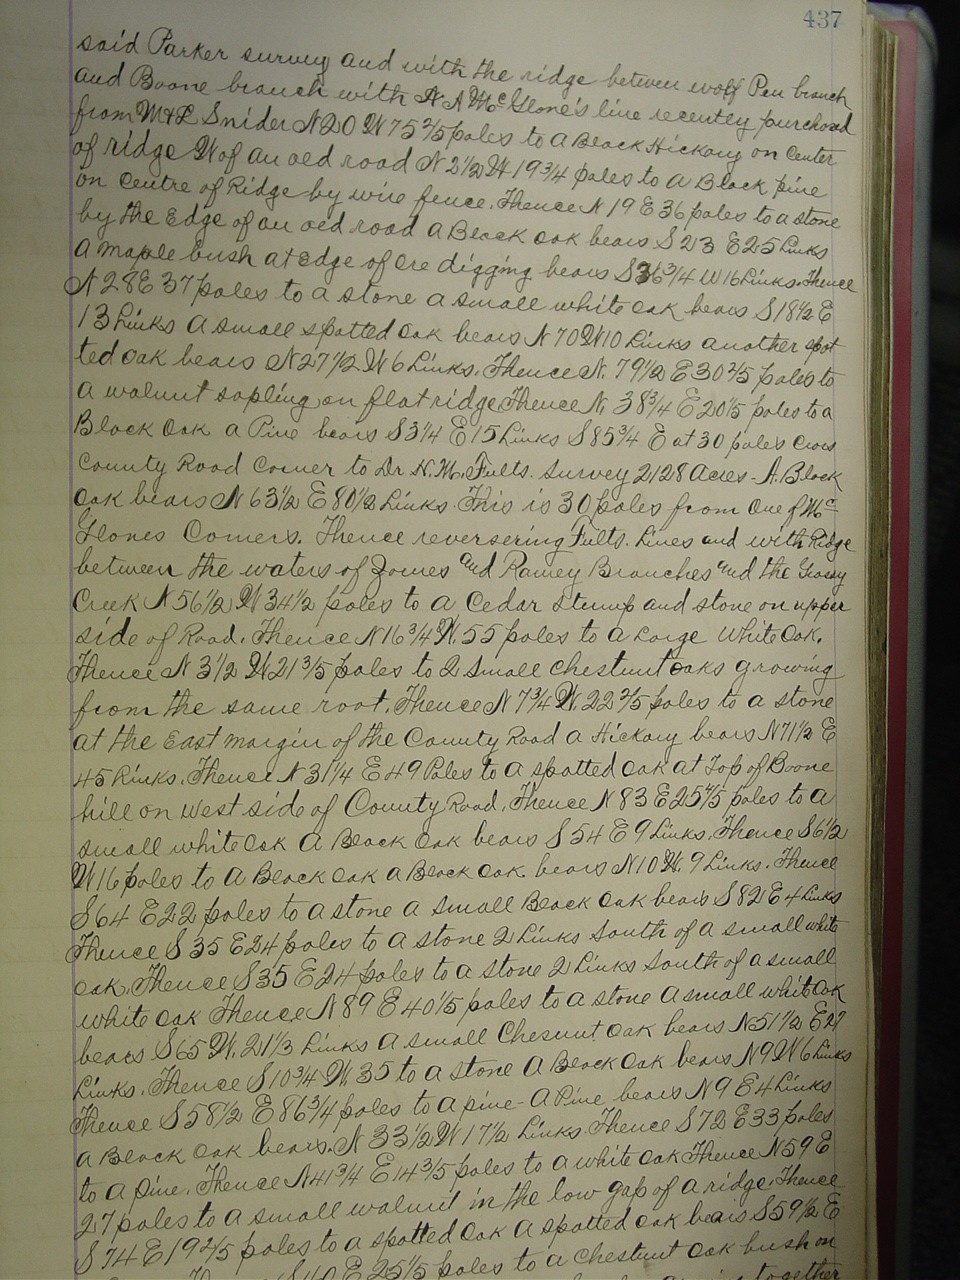 437
said Parker survey and with the ridge between wolf Pen branch
and Boone branch with A A McGlone's line recently purchased
from M & L Snider N 20 W 75 2/5 poles to a Black Hickory on Center
of ridge W of an old road N 2 1/2 W 19 3/4 poles to a Black pine
on Centre of Ridge by wire fence. Thence N 19 E 36 poles to a stone
by the Edge of an old road a Black oak bears S 23 E 25 Links
a maple bush at edge of Ore digging bears S 36 3/4 W 16 Links. Thence
N 28 E 37 poles to a stone a small white oak bears S 18 1/2 E
13 Links a small spotted oak bears N 70 W 10 Links another spot
ted oak bears N 27 1/2 W 6 Links. Thence N. 79 1/2 E 30 2/5 poles to
a walnut sapling on flat ridge Thence N. 38 3/4 E 20 1/5 poles to a
Black Oak a Pine bears S 3 1/4 E 15 Links S 85 3/4 E at 30 poles cross
County Road Corner to Dr. N. M. Fults. survey 2128 acres - A. Black
oak bears N 63 1/2 E 80 1/2 Links This is 30 poles from one of Mc
Glones Corners. Thence reversering Fults. Lines and with Ridge
between the waters of Jomes and Ramey Branches and the Grassy
Creek N 56 1/2 W 34 1/2 poles to a Cedar stump and stone on upper
side of Road. Thence N 16 3/4 W. 55 poles to a Large White Oak.
Thence N 3 1/2 W 21 3/5 poles to 2 small chestnut oaks growing
from the same root. Thence N 7 3/4 W. 22 2/5 poles to a stone
at the East margin of the County Road a Hickory bears N 71 1/2 E
45 Links. Thence N 31 1/4 E 49 Poles to a spotted oak at Top of Boone
hill on west side of County Road. Thence N 83 E 25 4/5 poles to a
small white oak a Black oak bears S 54 E 9 Links. Thence S 6 1/2
W 16 poles to a Black oak a Black oak bears N 10 W. 9 Links. Thence
S 64 E 22 poles to a stone a small Black oak bears S 82 E 4 Links
Thence S 35 E 24 poles to a stone 2 Links South of a small white
oak. Thence S 35 E 24 poles to a stone 2 Links South of a small
white oak Thence N 89 E 40 1/5 poles to a stone a small white oak
bears S 65 W. 21 1/3 Links a small Chesnut oak bears N 51 1/2 E 27
Links. Thence S 10 3/4 W. 35 to a stone a Black oak bears N 9 W 6 Links
Thence S 58 1/2 E 86 3/4 poles to a pine - a Pine bears N 9 E 4 Links
a Black oak bears. N 33 1/2 W 17 1/2 Links. Thence S 72 E 33 poles
to a pine. Thence N 41 3/4 E 14 3/5 poles to a white oak Thence N 59 E
27 poles to a small walnut in the low gap of a ridge. Thence
S 74 E 19 2/5 poles to a spotted oak a spotted oak bears S 59 1/2 E
S 40 E 25 1/5 poles to a chestnut oak bush on
together